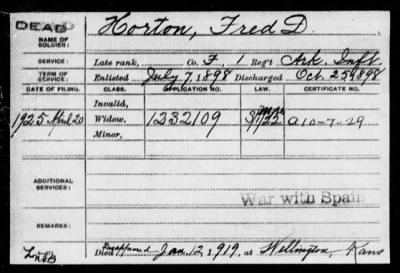 DEAD
NAME OF SOLDIER: Horton, Fred D.
SERVICE: Late rank, Co. F, 1 Reg't Ark. Inft.
TERM OF SERVICE: Enlisted July 7, 1898 Discharged Oct. 25, 1898
DATE OF FILING. CLASS. APPLICATION NO. LAW. CERTIFICATE NO.
Invalid,
1925 April 20 Widow, 1232109 A 10-7-29
Minor,
ADDITIONAL SERVICES:
War with Spain
REMARKS:
Died Disappeared Jan. 12, 1919, at Wellington, Kans